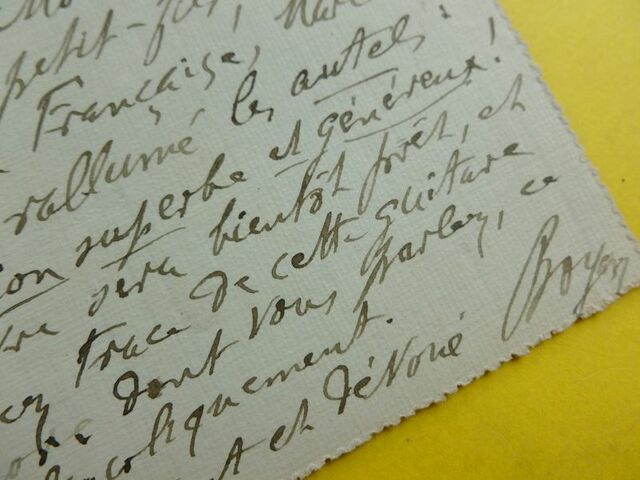 petit-fils, Marc
Française,
rallumé les autels :
superbe et généreux !
sera bientôt prêt, et
trace de cette guitare
dont vous parlez, ce
et dévoué Boyer